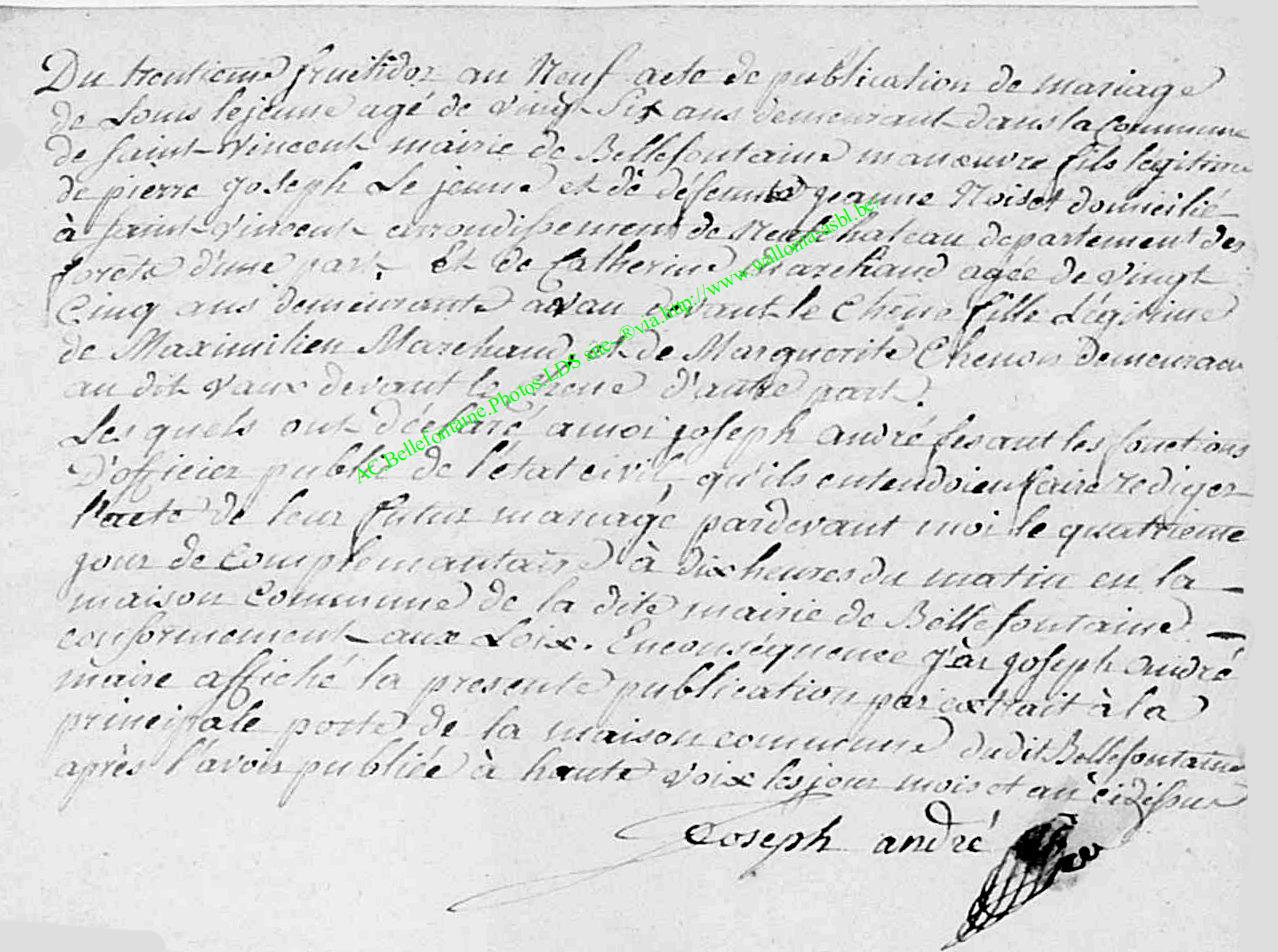 Du trentieme fructidor an Neuf acte de publication de mariage
de Louis lejeune agé de vingt Six ans demeurant dans la Commune
de saint Vincent mairie de Bellefontaine manœuvre fils légitime
de pierre Joseph Le jeune et de défunte jeanne Noiset domicilié
à saint Vincent arrondissement de Neufchateau département des
forêts d'une part, Et de Catherine Marchand agée de vingt
Cinq ans demeurante devant le Chene fille Légitime
de Maximilien Marchand et de Marguerite Chenois demeurant
au dit vaux devant le Chene d'autre part.
Les quels ont déclaré a moi joseph andré fesant les fonctions
D'officier public de l'état civil, qu'ils entendoient faire rediger
l'acte de leur futur mariage pardevant moi le quattrieme
jour de complemantaire à dix heures du matin en la
maison Commune de la dite mairie de Bellefontaine
conformement aux Loix. En conséquence j'ai joseph andré
maire affiché la presente publication par extrait à la
principale porte de la maison commune du dit Bellefontaine
après l'avoir publiée à haute voix les jour mois et an cidessus
Joseph andré
AC.Bellefontaine.Photos.LDS site ®via.http://www.walloniasbl.be/